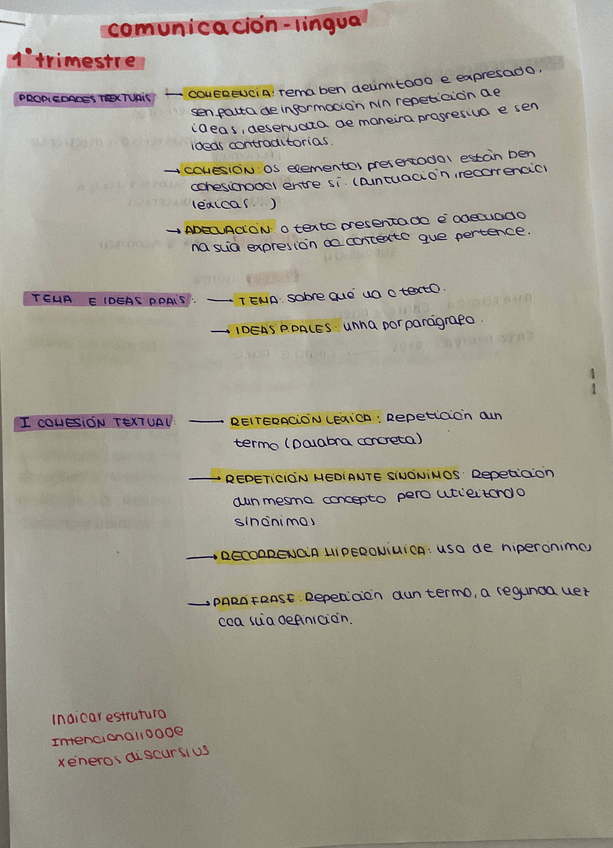 comunicación-lingua
1º trimestre
PROPIEDADES TEXTUAIS → COHERENCIA: tema ben delimitado e expresado.
sen falta de información nin repetición de
ideas, desenvolta de maneira progresiva e sen
ideas contraditorias.
→ COHESIÓN: os elementos presentados están ben
cohesionados entre sí. (puntuación, recorrencias
léxicas...)
→ ADECUACIÓN: o texto presentado é adecuado
na súa expresión ao contexto que pertence.
TEMA E IDEAS PPAIS: → TEMA: sobre qué va o texto.
→ IDEAS PPALES: unha por parágrafo.
I COHESIÓN TEXTUAL: → REITERACIÓN LÉXICA: Repetición dun
termo (palabra concreta)
→ REPETICIÓN MEDIANTE SINÓNIMOS: Repetición
dun mesmo concepto pero utilizando
sinónimos
→ RECORRENCIA HIPERONÍMICA: uso de hiperónimos
→ PARÁFRASE: Repetición dun termo, a segunda vez
coa súa definición.
Indicar estrutura
Intencionalidade
xéneros discursivos